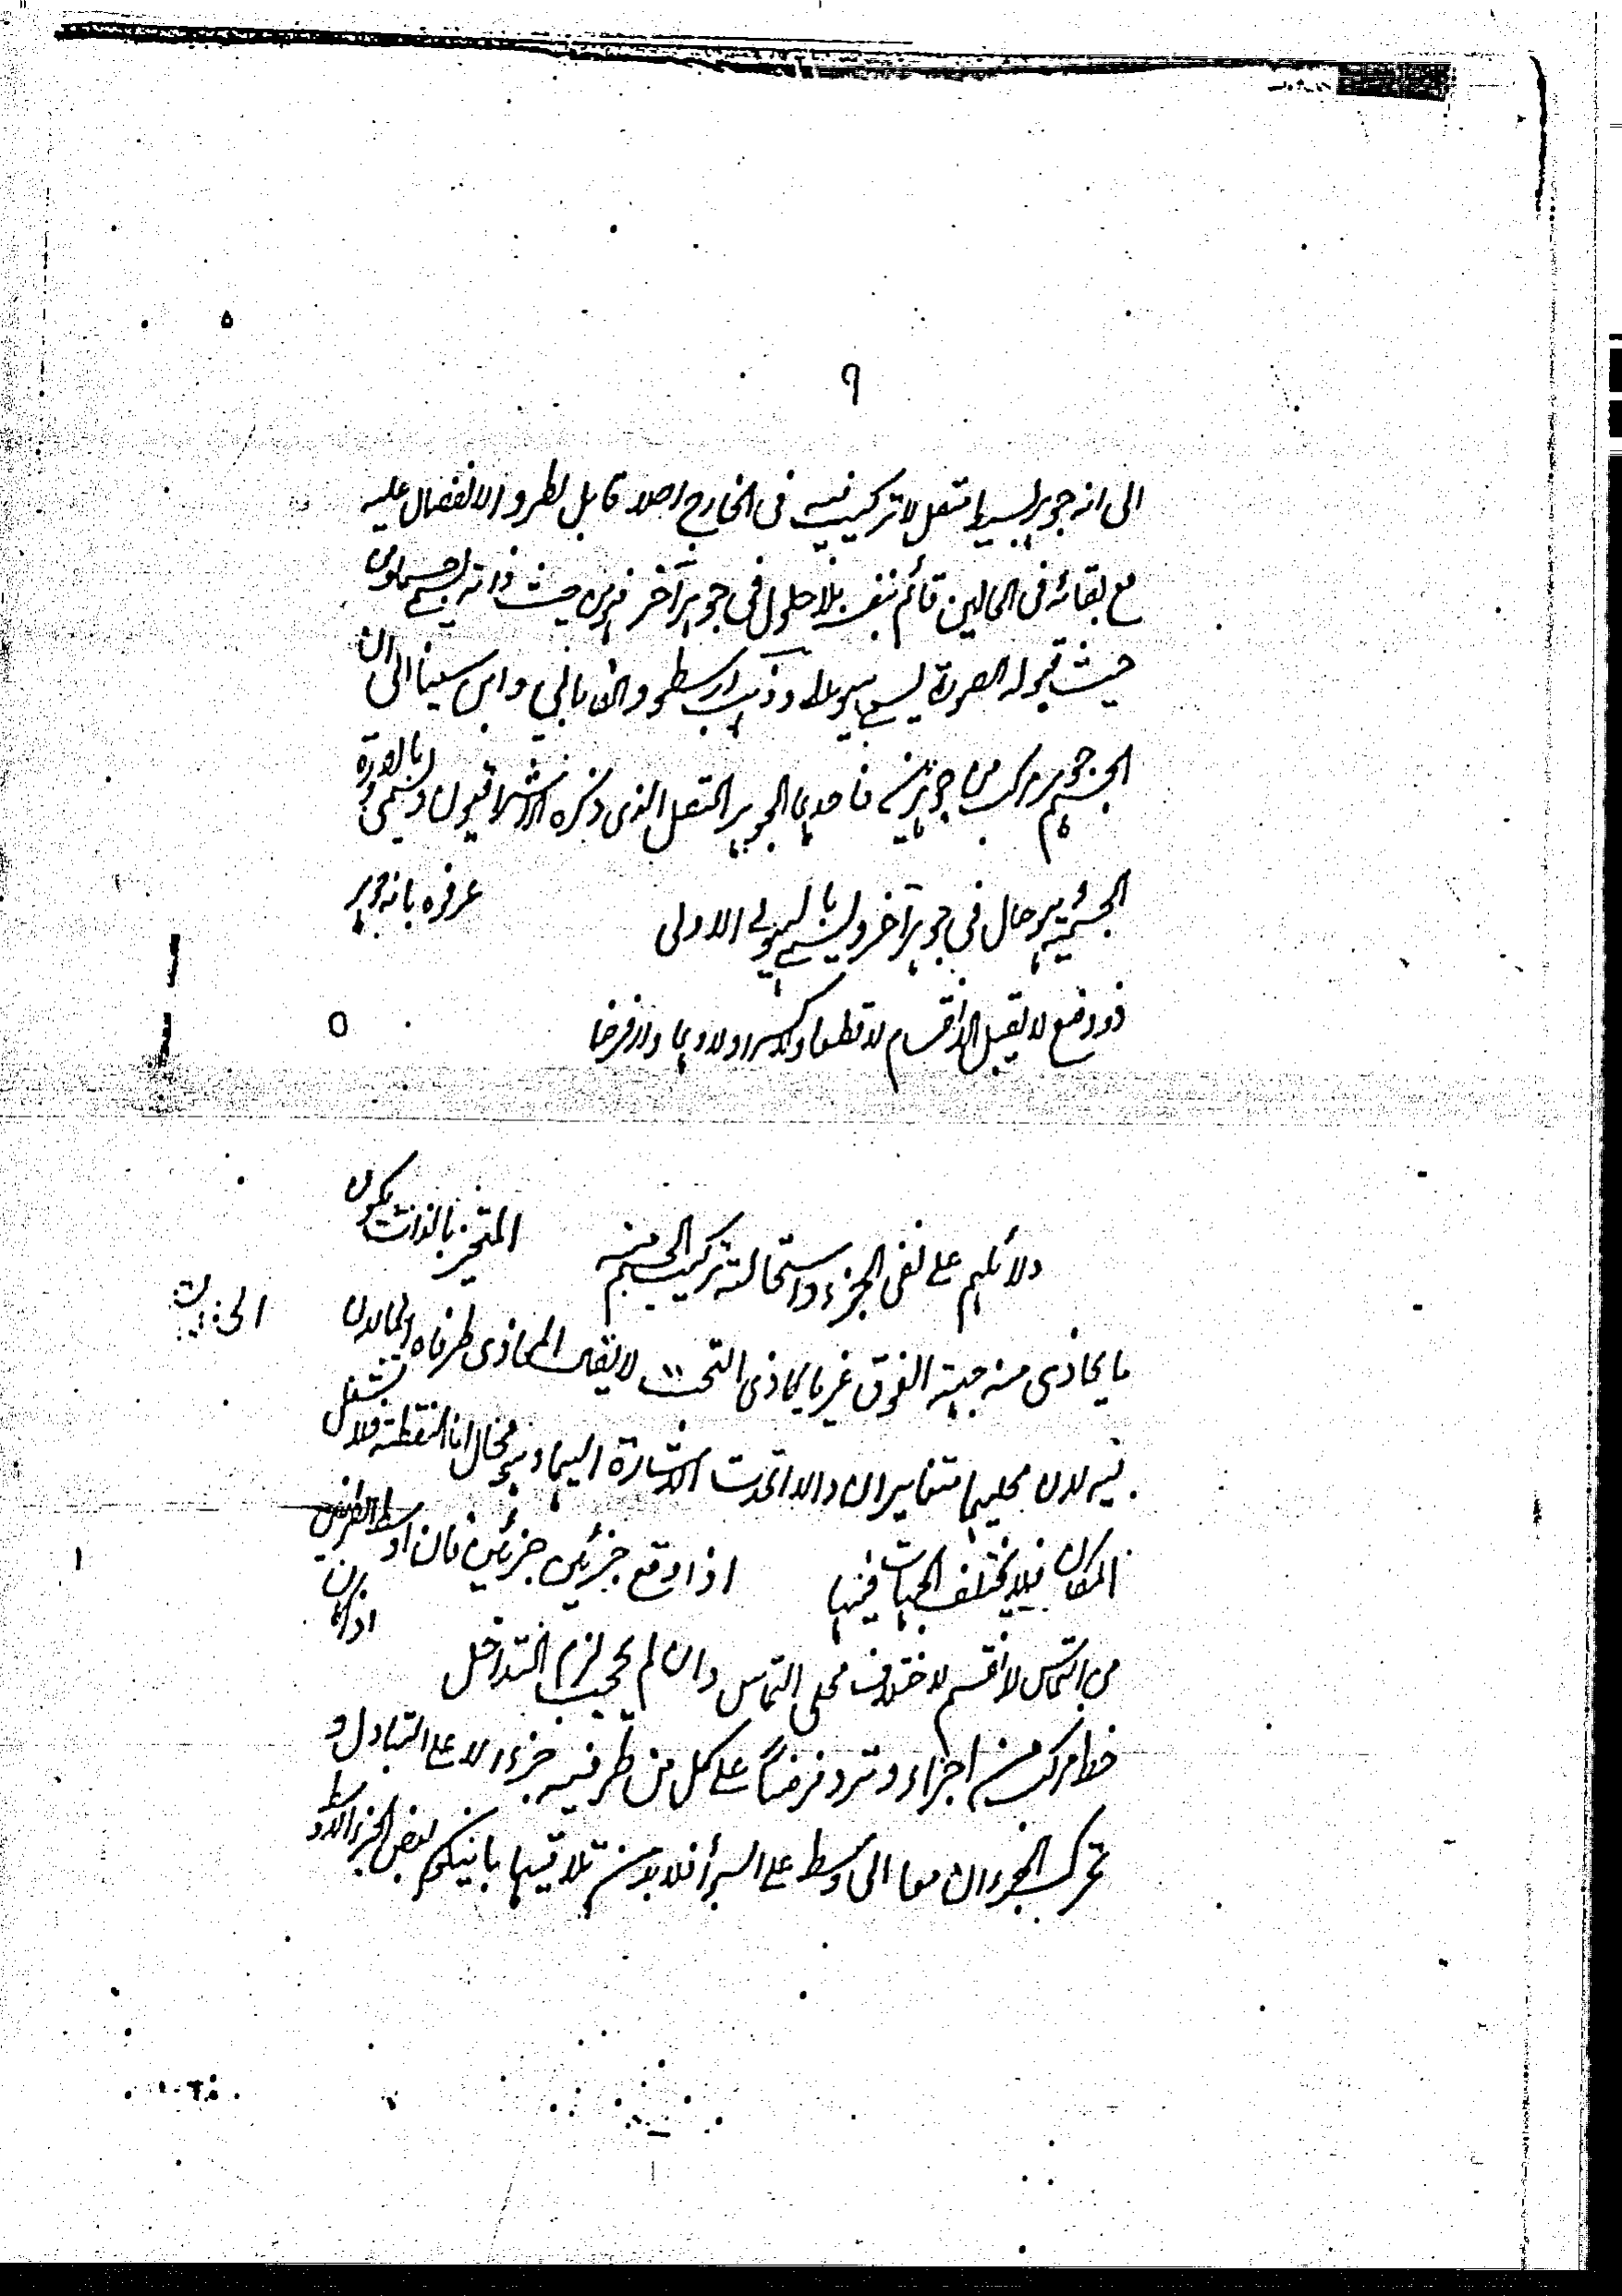 ٩
الى انه جوهر بسيط متصل لا تركيب فيه فى الخارج اصلا قابل لطرو الانفصال عليه
مع بقائه فى الحالين قائم بنفسه بلا حلول فى جوهر آخر فهو من حيث ذاته جسم ومن
حيث قبوله الصورة يسمى هيولا وذهب ارسطو والفارابي وابن سينا الى ان
الجسم جوهر مركب من جوهرين فاحدهما الجوهر المتصل الذى ذكره الاشراقيون ويسمى بالصورة
الجسمية هو حال فى جوهر آخر ويسمى بالهيولى الاولى
عرفوه بانه جوهر
ذو وضع لا يقبل الانقسام لا قطعا ولا كسرا ولا وهما ولا فرضا
دلائلهم على نفى الجزء واستحالة تركيب الجسم منه
المتحيز بالذات يكون
ما يحاذى منه جهة الفوق غير ما يحاذى التحت لا يقال المحاذى طرفاه الحالان
فيه لان محليهما متغايران والا اتحدت الاشارة اليهما وهو محال اما النقطة فلا تشغل
المكان فلا يختلف الجهات فيها
اذا وقع جزئين جزئين فان اوسط الطرفين
من التماس لانقسم لاختلاف محلى التماس وان لم يحجب لزم التداخل
اذا كان
خط مركب من اجزاء وتر وفرضنا على كل من طرفيه جزء لا على التبادل و
تحرك الجزءان معا الى وسط على السواء فلا بد من تلاقيهما بانيكم بعض الجزء الاوسط